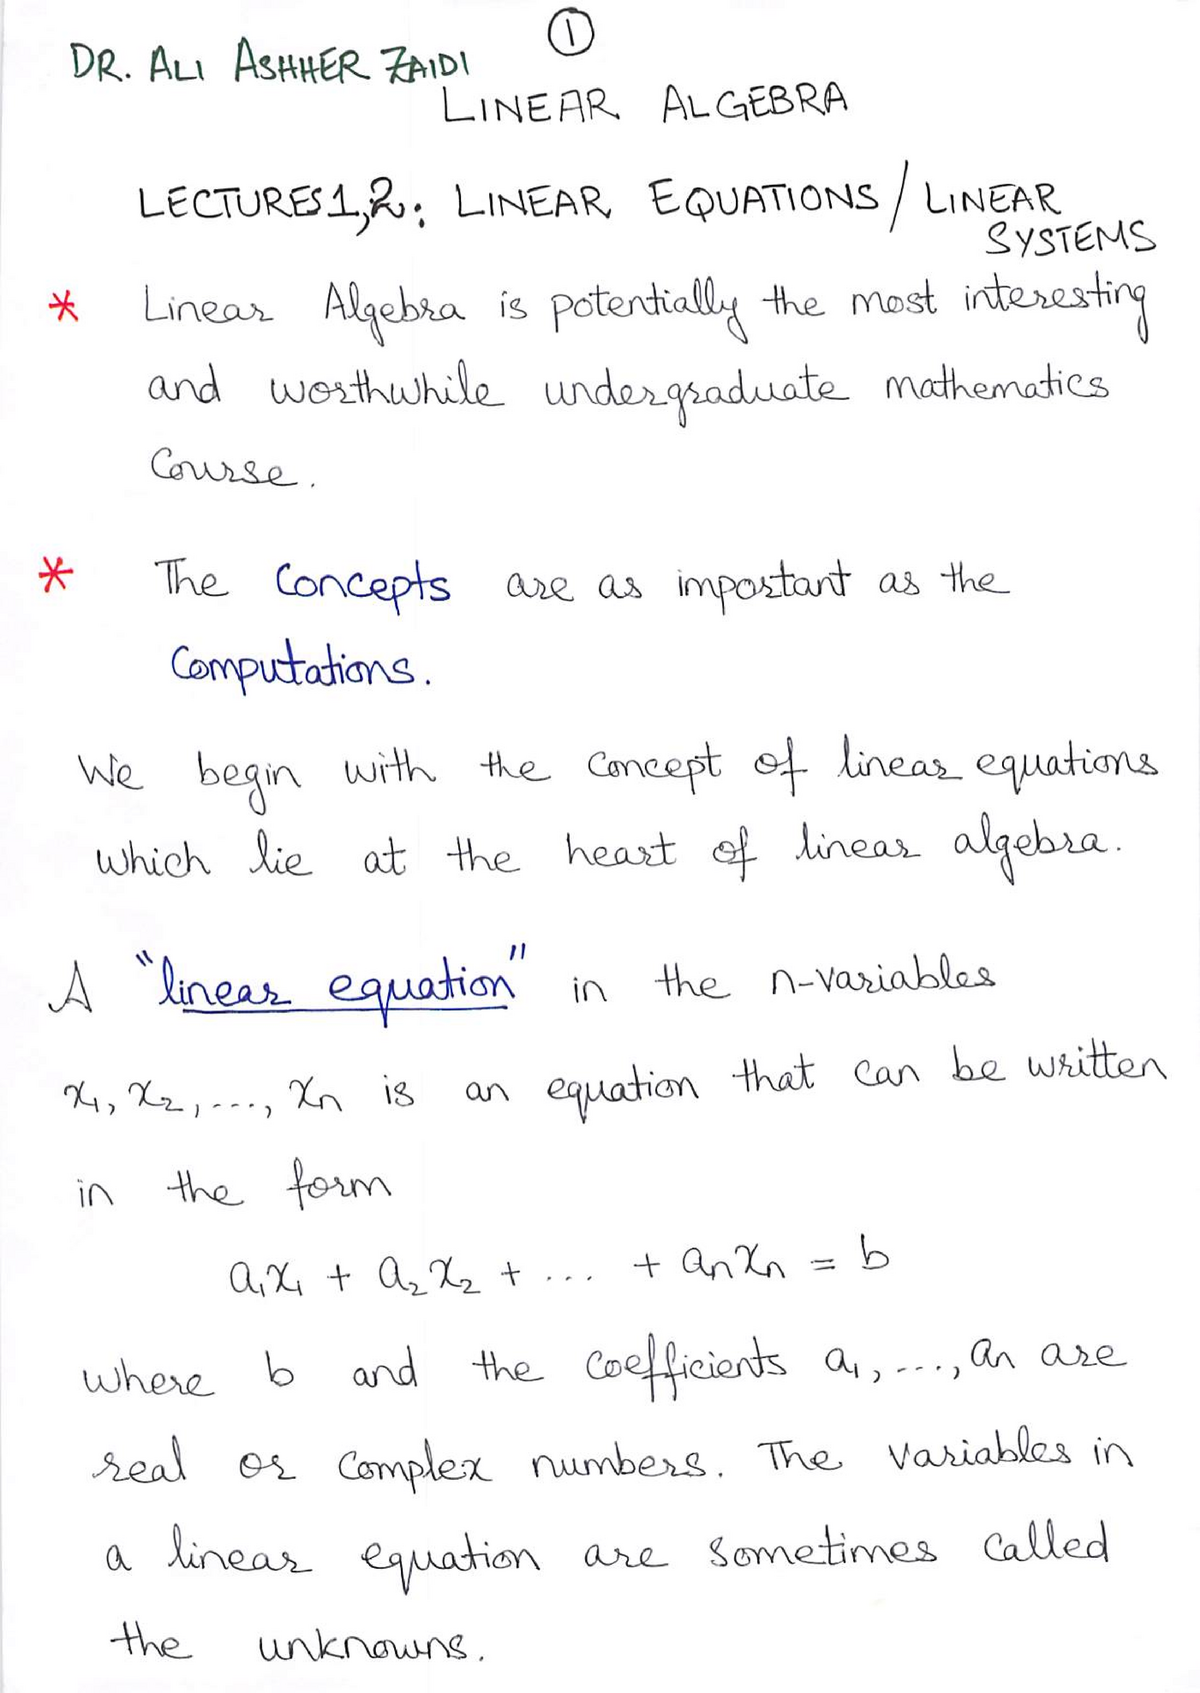 ①
DR. ALI ASHHER ZAIDI
LINEAR ALGEBRA
LECTURES 1,2: LINEAR EQUATIONS / LINEAR
SYSTEMS
* Linear Algebra is potentially the most interesting
and worthwhile undergraduate mathematics
Course.
* The Concepts are as important as the
Computations.
We begin with the Concept of linear equations
which lie at the heart of linear algebra.
A "linear equation" in the n-variables
x₁, x₂, ..., xₙ is an equation that can be written
in the form
a₁x₁ + a₂x₂ + ... + aₙxₙ = b
where b and the Coefficients a₁, ..., aₙ are
real or Complex numbers. The variables in
a linear equation are sometimes called
the unknowns.